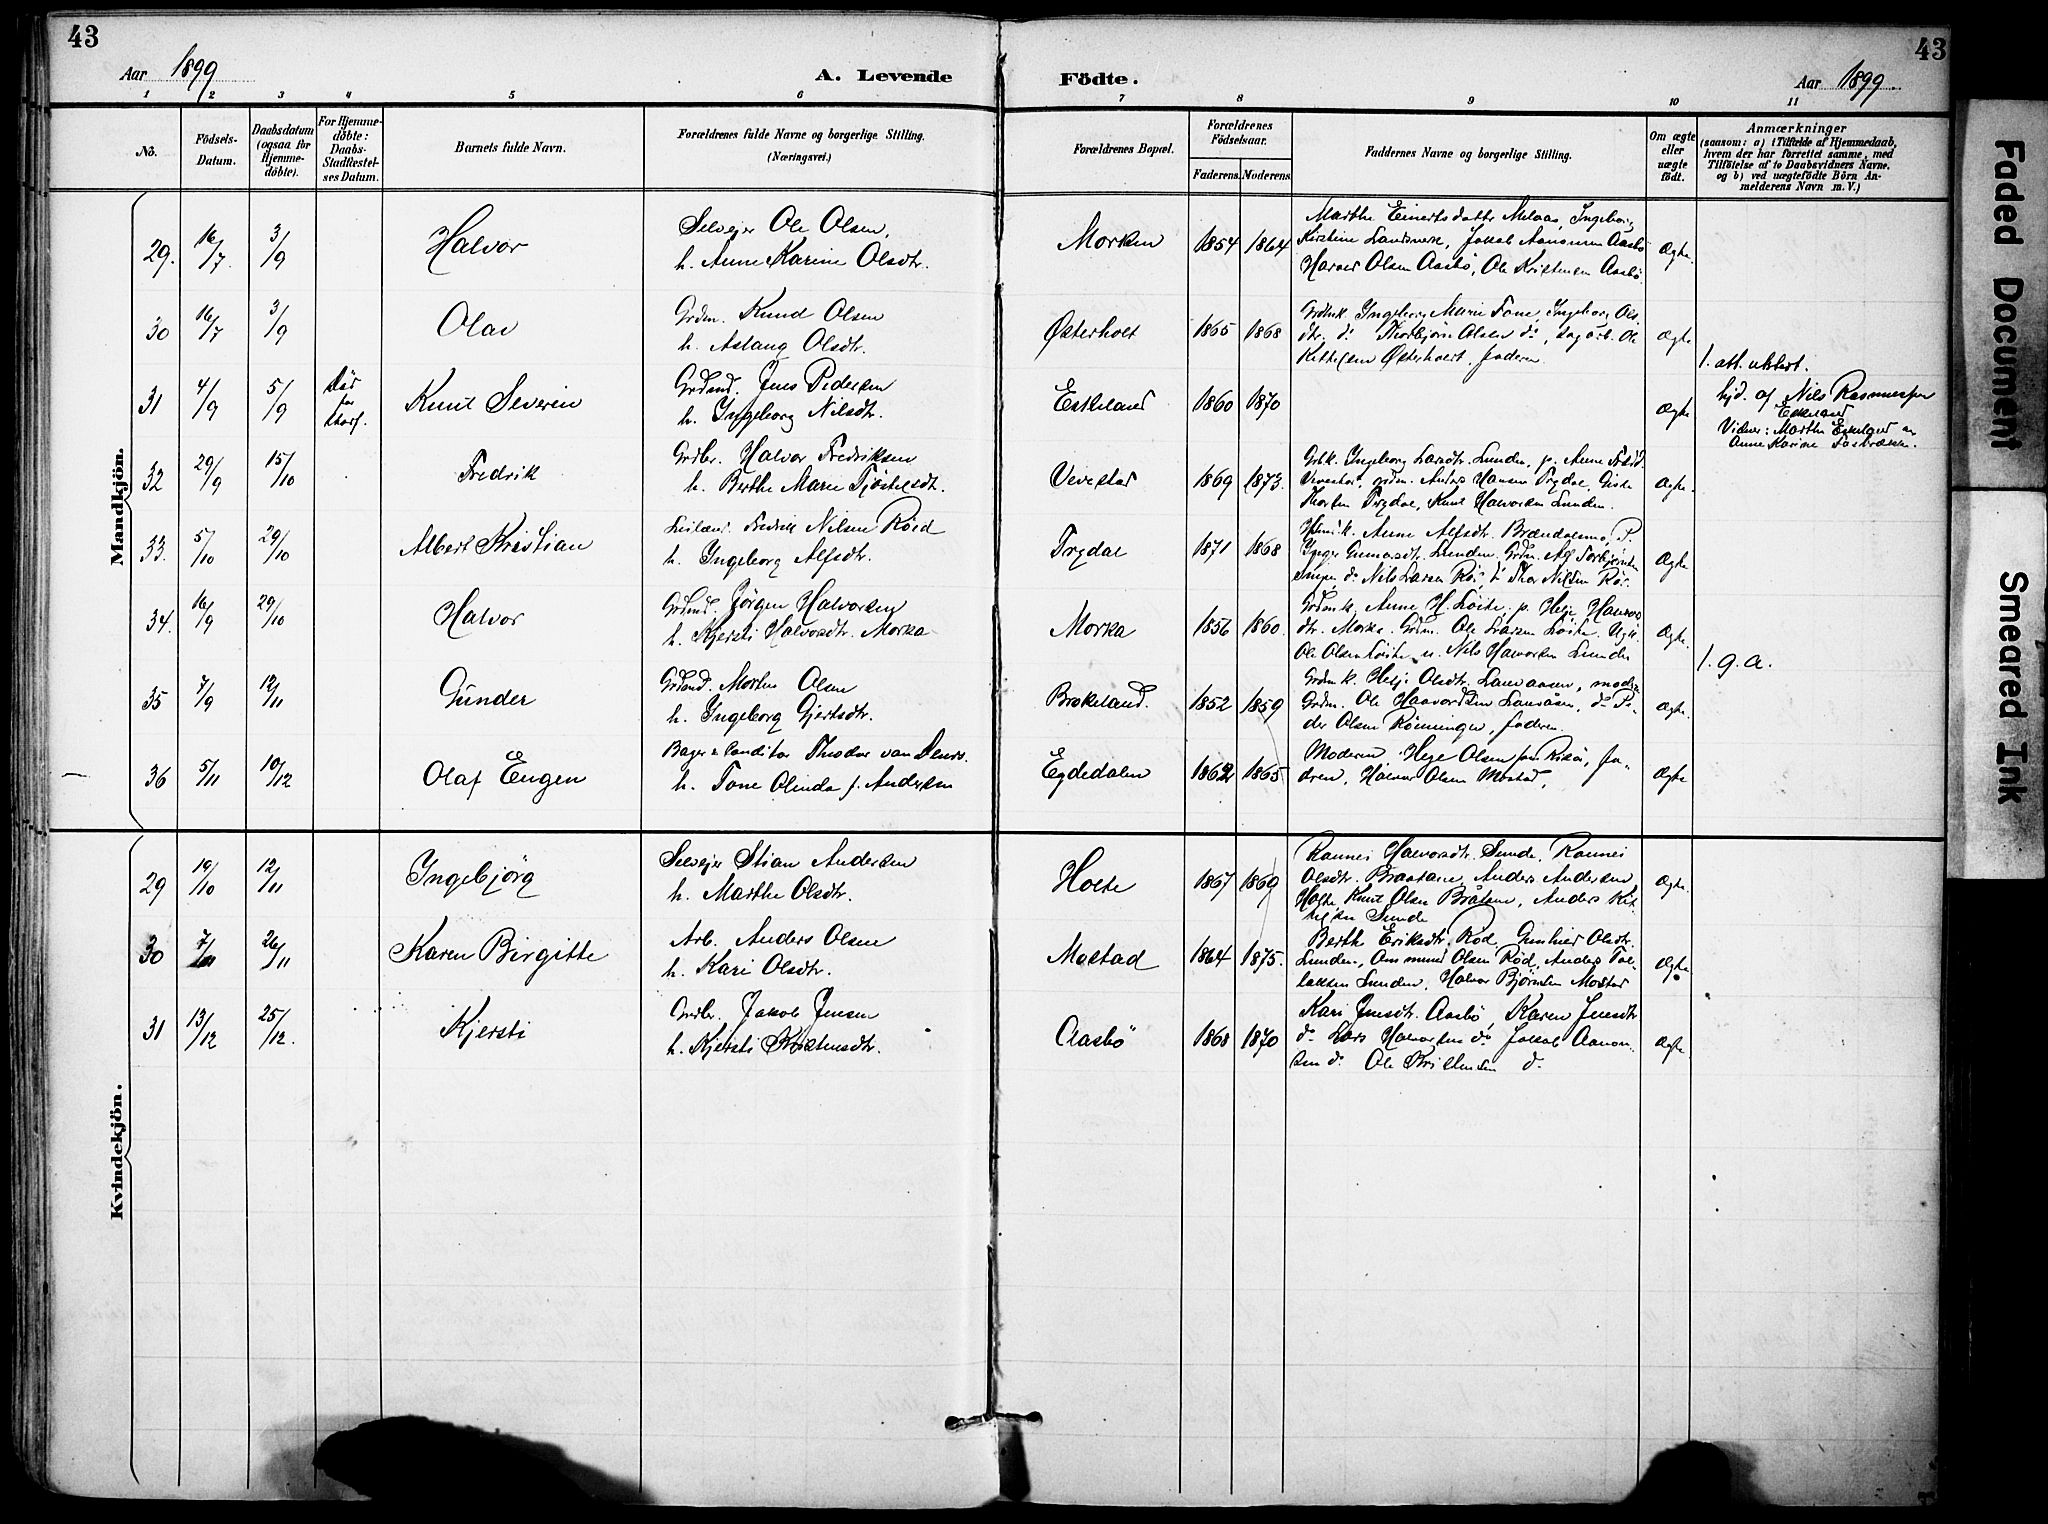 43
43
Aar 1899
A. Levende
Födte.
Aar 1899
1 2 3 4 5 6 7 8 9 10 11
No.
Födsels-
Datum.
Daabsdatum
(ogsaa for
Hjemme-
döbte).
For Hjemme-
döbte:
Daabs-
Stadfæstel-
ses Datum.
Barnets fulde Navn.
Forældrenes fulde Navne og borgerlige Stilling.
(Næringsvei.)
Forældrenes Bopæl.
Forældrenes
Födselsaar.
Faderens.
Moderens.
Faddernes Navne og borgerlige Stilling.
Om ægte
eller
uægte
födt.
Anmærkninger
(saasom: a) i Tilfælde af Hjemmedaab,
hvem der har forrettet samme, med
Tilföielse af to Daabsvidners Navne,
og b) ved uægtefödte Börn An-
melderens Navn m. V.)
Mandkjön.
29. 16/7. 3/9 Halvor
Selvejer Ole Olsen,
h. Anne Karine Olsdtr.
Morken 1854 1864
Marthe Einertsdatter Melaas, Ingeborg
Kirstine Landsverk, Jakob Aanonsen Aasbö
Olsen Aasbö, Ole Kristensen Aasbö.
Ægte.
30 16/7 3/9 Olav
Grdm. Knud Olsen
h. Aslaug Olsdtr.
Østerholt 1865 1868
Ingeborg Marie Tone, Ingeborg Ols
dtr. do Thorbjörn Olsen do, Ole
Kittelsen Østerholt, faderen
Ægte
31 4/9 5/9 Död
før
stadf.
Knut Severin
Grdmd. Jens Pedersen
h. Ingeborg Nilsdtr.
Eskeland 1860 1870
Ægte
1. att. utstedt.
hjd. af Nils Rasmussen
Eskeland
Vidner: Marthe Eskeland og
Anne Karine
32 29/9 15/10 Fredrik
Grdbr. Halvor Fredriksen
h. Berthe Marie Tjöstelsdt.
Vevestad 1869 1873.
Ingeborg Larsdtr. Lunden, p. Anne
Vevestad, grdm. Anders Hansen Trydal, Gisle
Thorsen Trydal, Knut Halvorsen Lunden.
Ægte.
33. 5/10 29/10 Albert Kristian
Fredrik Nilsen Röed
h. Ingeborg Alfsdtr.
Trydal 1871 1868
Anne Alfsdtr. Brændalsmo, P.
Inger Gunnarsdtr. Lunden. Grdm. Alf Torbjörnsen
do Nils Larsen Röd, do Thor Nilsen Röd.
Ægte
34. 16/9 29/10 Halvor
Grdmd. Jörgen Halvorsen
h. Kjersti Halvorsdtr. Morka
Morka 1856 1860.
Grdmk. Anne H. Löite, p. Helje Halvors
dtr. Morka. Grdm. Ole Larsen Löite. Ugk.
Ole Olsen Löite, u. Nils Halvorsen Lunden
Ægte.
1. g. a.
35 7/9 12/11 Gunder
Grdmd. Morten Olsen
h. Ingeborg Gjertsdtr.
Brokeland. 1852 1859
Grdmk. Helje Olsdtr. Lauvaasen, moder
Grdm. Ole Haavordsen Lauvåsen, do Pe-
der Olsen Rönningen, faderen.
Ægte.
36 5/11 10/12 Olaf Eugen
Bager & Conditor Theodor van
h. Tone Olinda f. Andersen
Egdedalen 1862 1865.
Moderen, Hege Olsen fra Risör, fa-
deren, Halvor Olsen Mostad,
Ægte
Kvindekjön.
29 19/10 12/11 Ingebjörg
Selvejer Stian Andersen
h. Marthe Olsdtr.
Holte 1867 1869
Ronnei Halvorsdtr. Sunde, Ronnei
Olsdtr. Braatane, Anders Andersen
Holte, Knut Olsen Bråtane, Anders Kit-
telsen Sunde
Ægte.
30 7/11 26/11 Karen Birgitte
Arb. Anders Olsen
h. Kari Olsdtr.
Mostad 1864 1875.
Berthe Eriksdtr. Röd, Gunhild Olsdtr.
Lunden, Ommund Olsen Röd, Anders Tal-
laksen Lunden, Halvor Bjørnsen Mostad
Ægte
31 13/12 25/12. Kjersti
Grdbr. Jakob Jensen
h. Kjersti Kristensdtr.
Aasbö 1868 1870
Kari Jensdtr. Aasbö Karen Jensdtr
do Lars Halvorsen do, Jakob Aanon-
sen do. Ole Kristensen do
Ægte
Faded Document
Smeared Ink